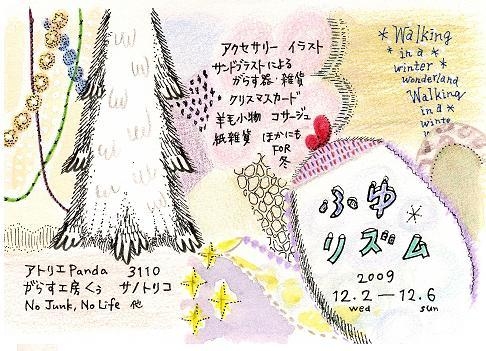 アクセサリー イラスト
サンドブラストによる
がらす器・雑貨
クリスマスカード
羊毛小物 コサージュ
紙雑貨 ほかにも
FOR
冬
* Walking *
in a *
winter
wonderland
Walking
in a *
winte
ふゆ
リズム
2009
12.2—12.6
wed sun
アトリエPanda 3110
がらす工房くぅ サノトリコ
No Junk, No Life 他